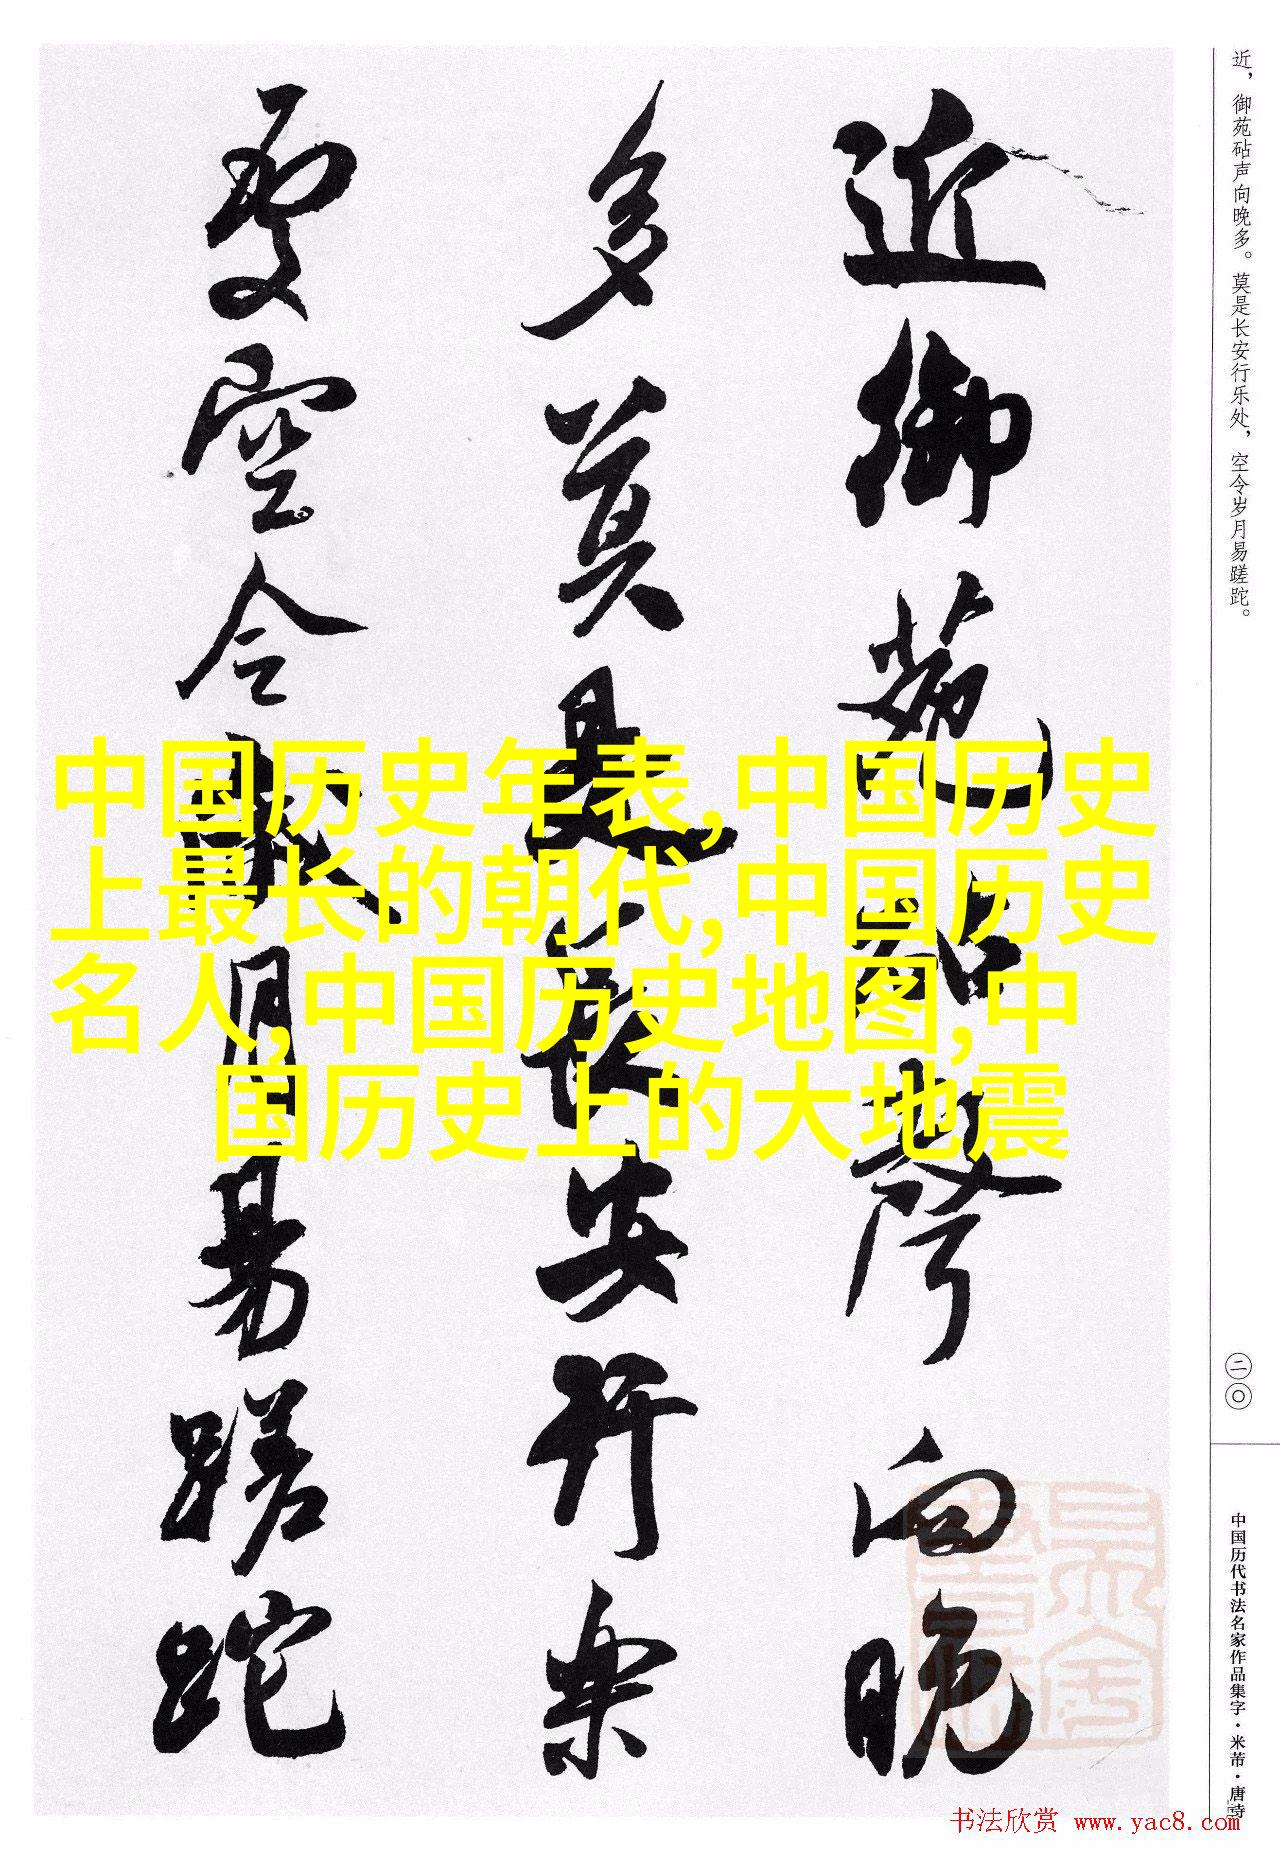 近，御苑砧声向晚多。莫是长安行乐处，空令岁月易蹉跎。
近御苑砧声向晚
多莫是长安行樂
处空令歲月易蹉跎
中国历史年表,中国历史
上最长的朝代,中国历史
名人,中国历史地图,中
国历史上的大地震
二〇
中国历代书法名家作品集字·米芾·唐诗
书法欣赏 www.yac8.com